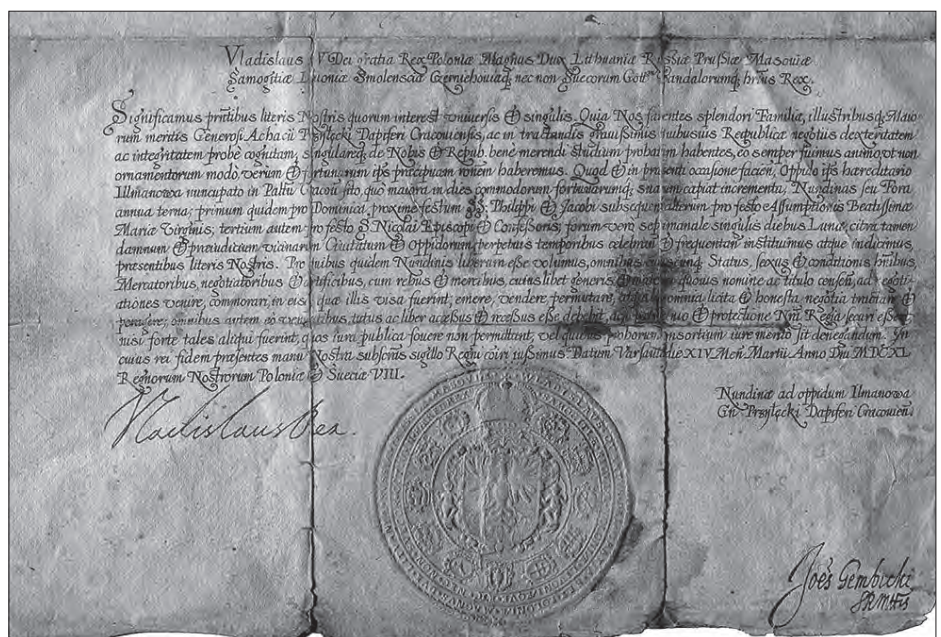 Vladislaus IV Dei gratia Rex Poloniæ Magnus Dux Lithuaniæ Russiæ Prussiæ Masoviæ
Samogitiæ Livoniæ Smolensciæ Czerniehouiæq, nec non Suecorum Gott. Vandalorumq, hrius Rex.
Significamus prñtibus literis Nostris quorum interest vniuersis & singulis. Quia Nos fauentes splendori Familiæ, illustribusq, Maio
rum meritis Generosi Achacii Przyłęcki Dapiferi Cracouiensis, ac in tractandis grauissimis quibusuis Reipublicæ negotiis dexteritatem
ac integritatem probè cognitam, singularéq, de Nobis & Repub. benè merendi studium probatum habentes, eo semper fuimus animo, vt non
ornamentorum modo, verùm & fortunarum ips præcipuam rõnem haberemus. Quod & in præsenti occasione facien, Oppido ips hæreditario
Illmanowa nuncupato in Pałtu Cracoū sito, quo maiora in dies commodorum fortunarumq, suarum capiat incrementa, Nundinas seu Fora
annua terna; primum quidem pro Dominica, proximè festum SS. Philippi & Jacobi subsequen alterum pro festo Assumptionis Beatissimæ
Mariæ Virginis, tertium autem pro festo S. Nicolai Episcopi & Confessoris; forum verò septimanale singulis diebus Lunæ, citra tamen
damnum & præiudicium vicinarum Ciuitatum & oppidorum perpetuis temporibus celebran & frequentan instituimus atque indicimus,
præsentibus literis Nostris. Pro quibus quidem Nundinis liberam esse volumus, omnibus cuiuscunq, Status, sexus & conditionis hñibus,
Mercatoribus, negotiatoribus & artificibus, cum rebus & mercibus, cuius libet generis & quouis nomine ac titulo conseñ, ad negoti-
ationes venire, commorari, in eis quæ illis visa fuerint, emere, vendere permutare, omnia licita & honesta negotia tractare &
peragere; omnibus autem eò venientibus, tutus ac liber accessus & recessus esse debebit, & protectione Nrã Regia securi essent
nisi forte tales aliqui fuerint, quos iura publica fouere non permittunt, vel quibus proborum consortium iure meritò sit denegandum. In
cuius rei fidem præsentes manu Nostra subscriñ sigillo Regni coĩri iussimus Datum Varsauiæ die XIV Meñ. Martii Anno Dñi MDCXL
Regnorum Nostrorum Poloniæ & Sueciæ VIII.
Vladislaus Rex.
Nundinæ ad oppidum Ilmanowa
Gñ Przyłęcki Dapiferi Cracouień.
Joẽs Gembicki